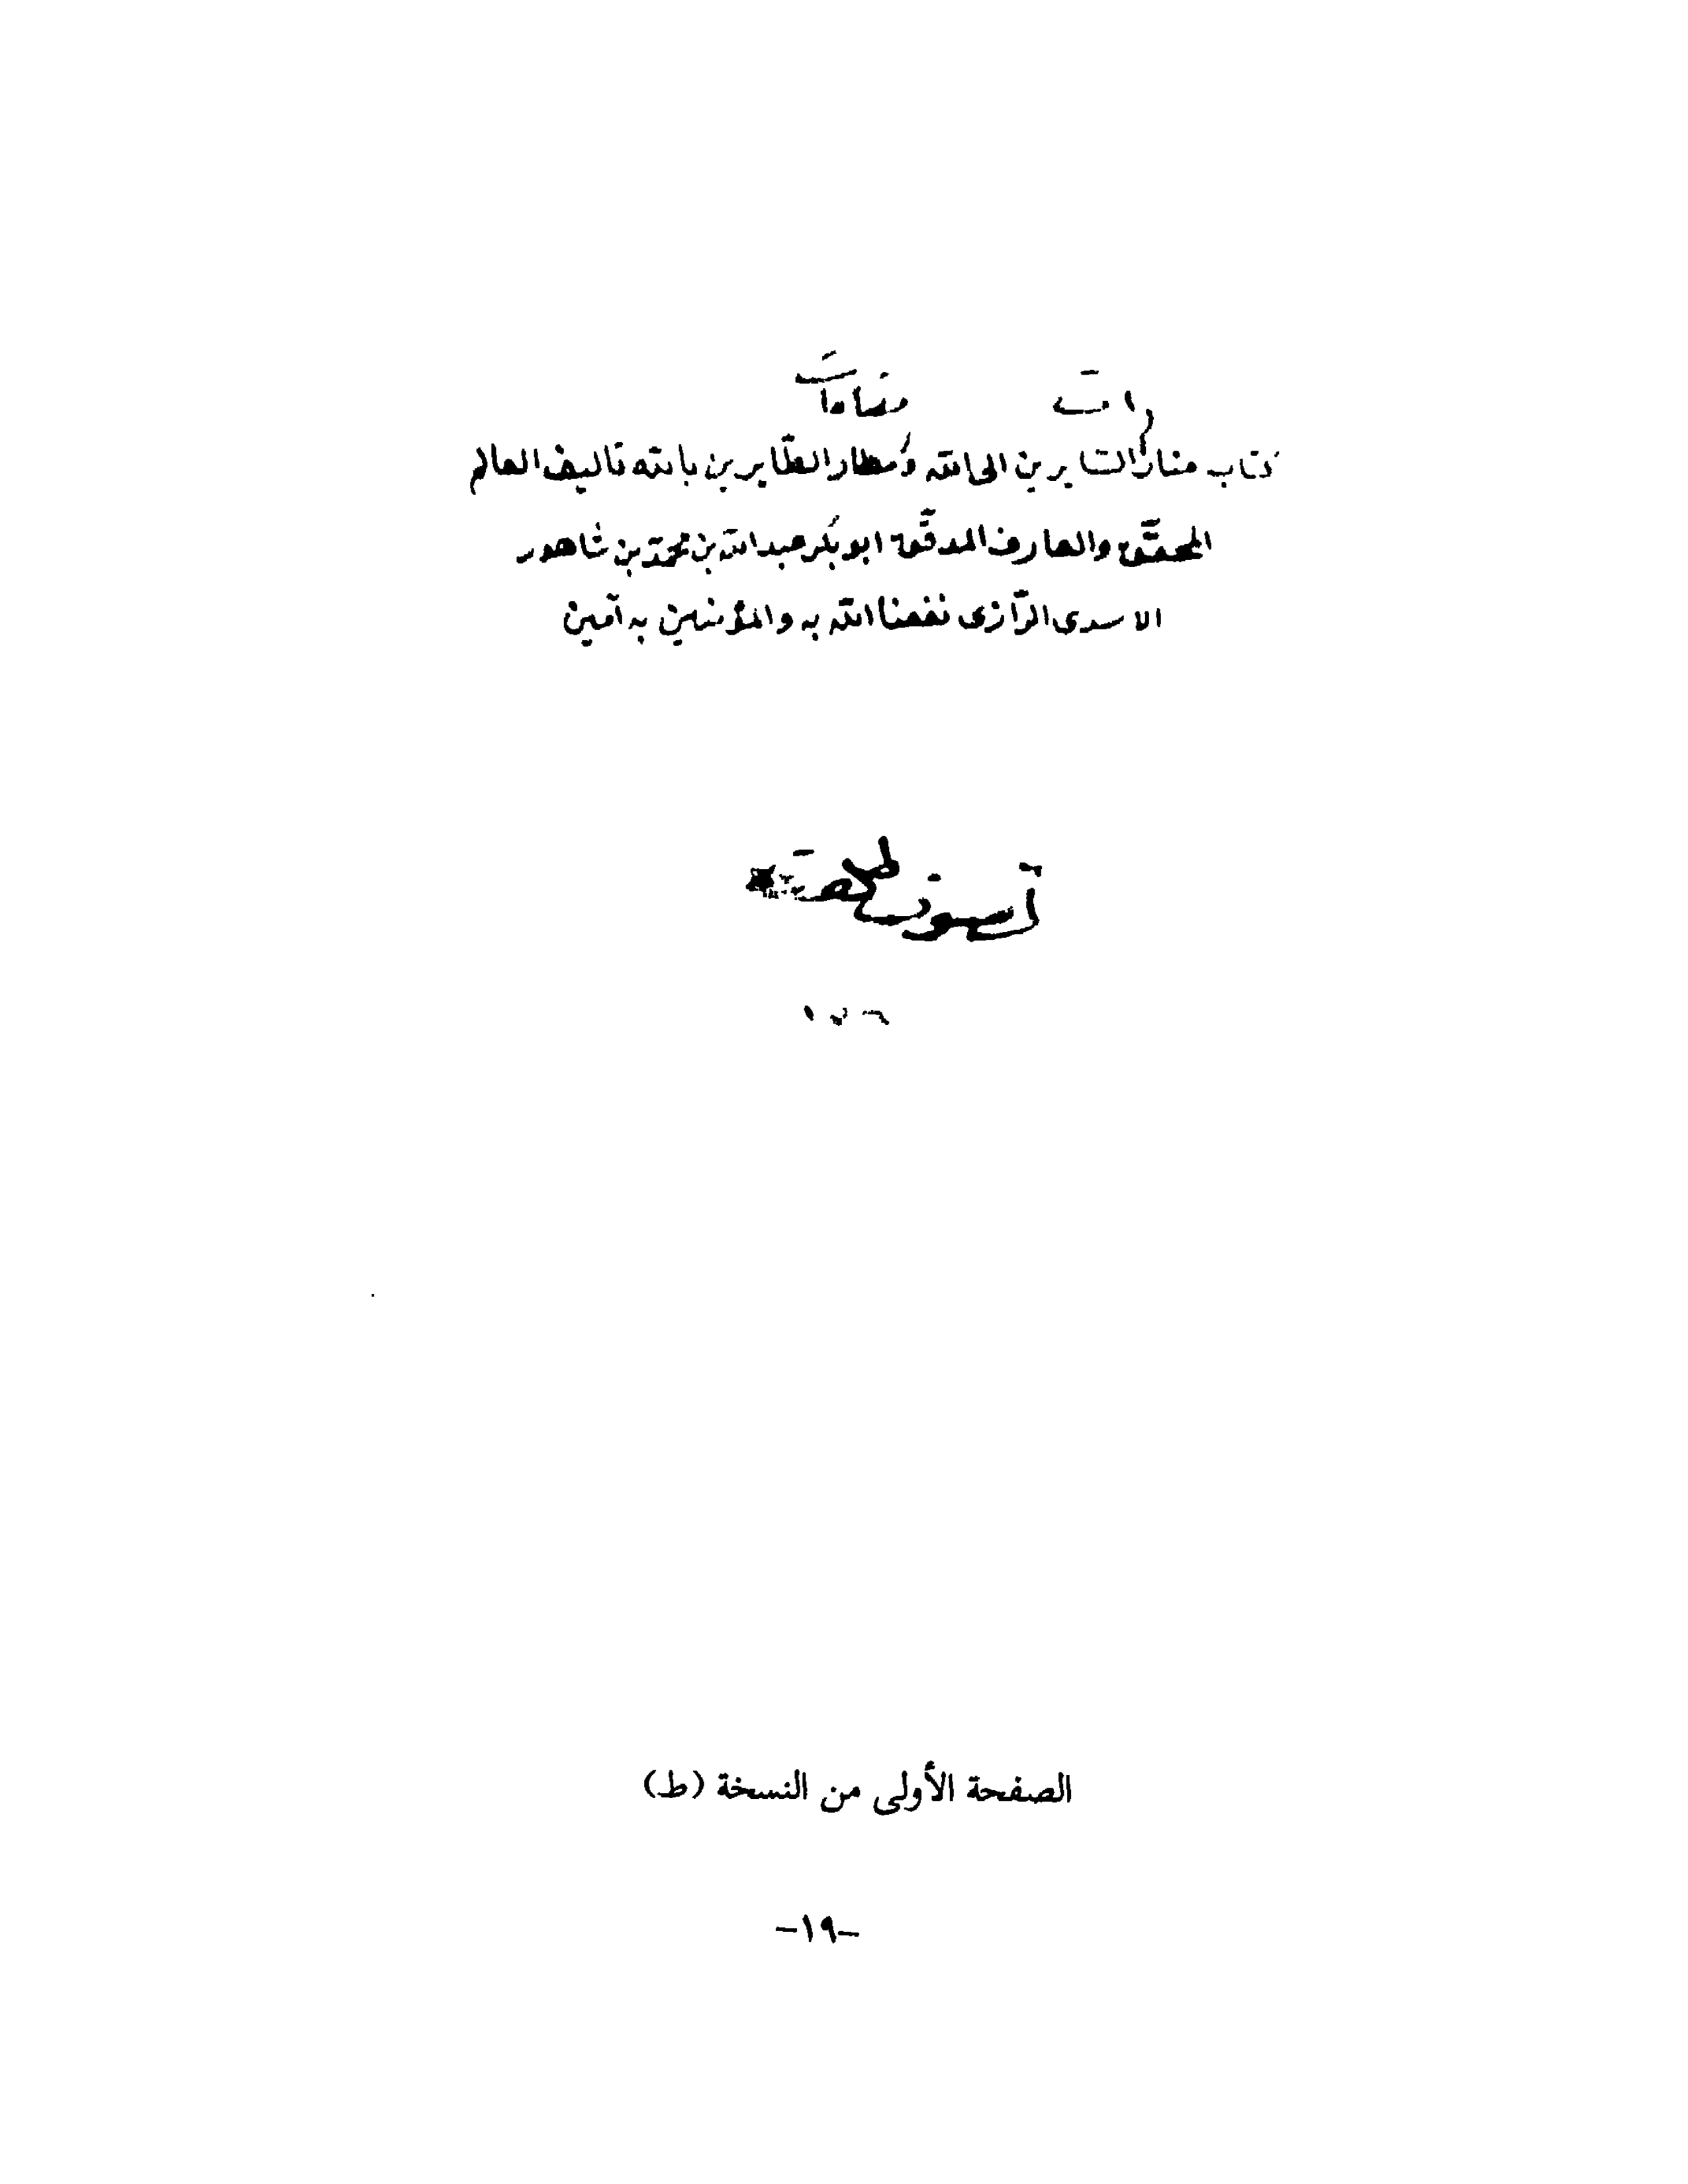 كتاب منار السايرين الى الله ومطار الطايرين بالله تاليف العالم
المحقق والعارف المدقق ابو بكر عبد الله بن محمد بن شاهور
الاسدى الرازى نفعنا الله به والمؤمنين به آمين
الصفحة الأولى من النسخة (ط)
-١٩-